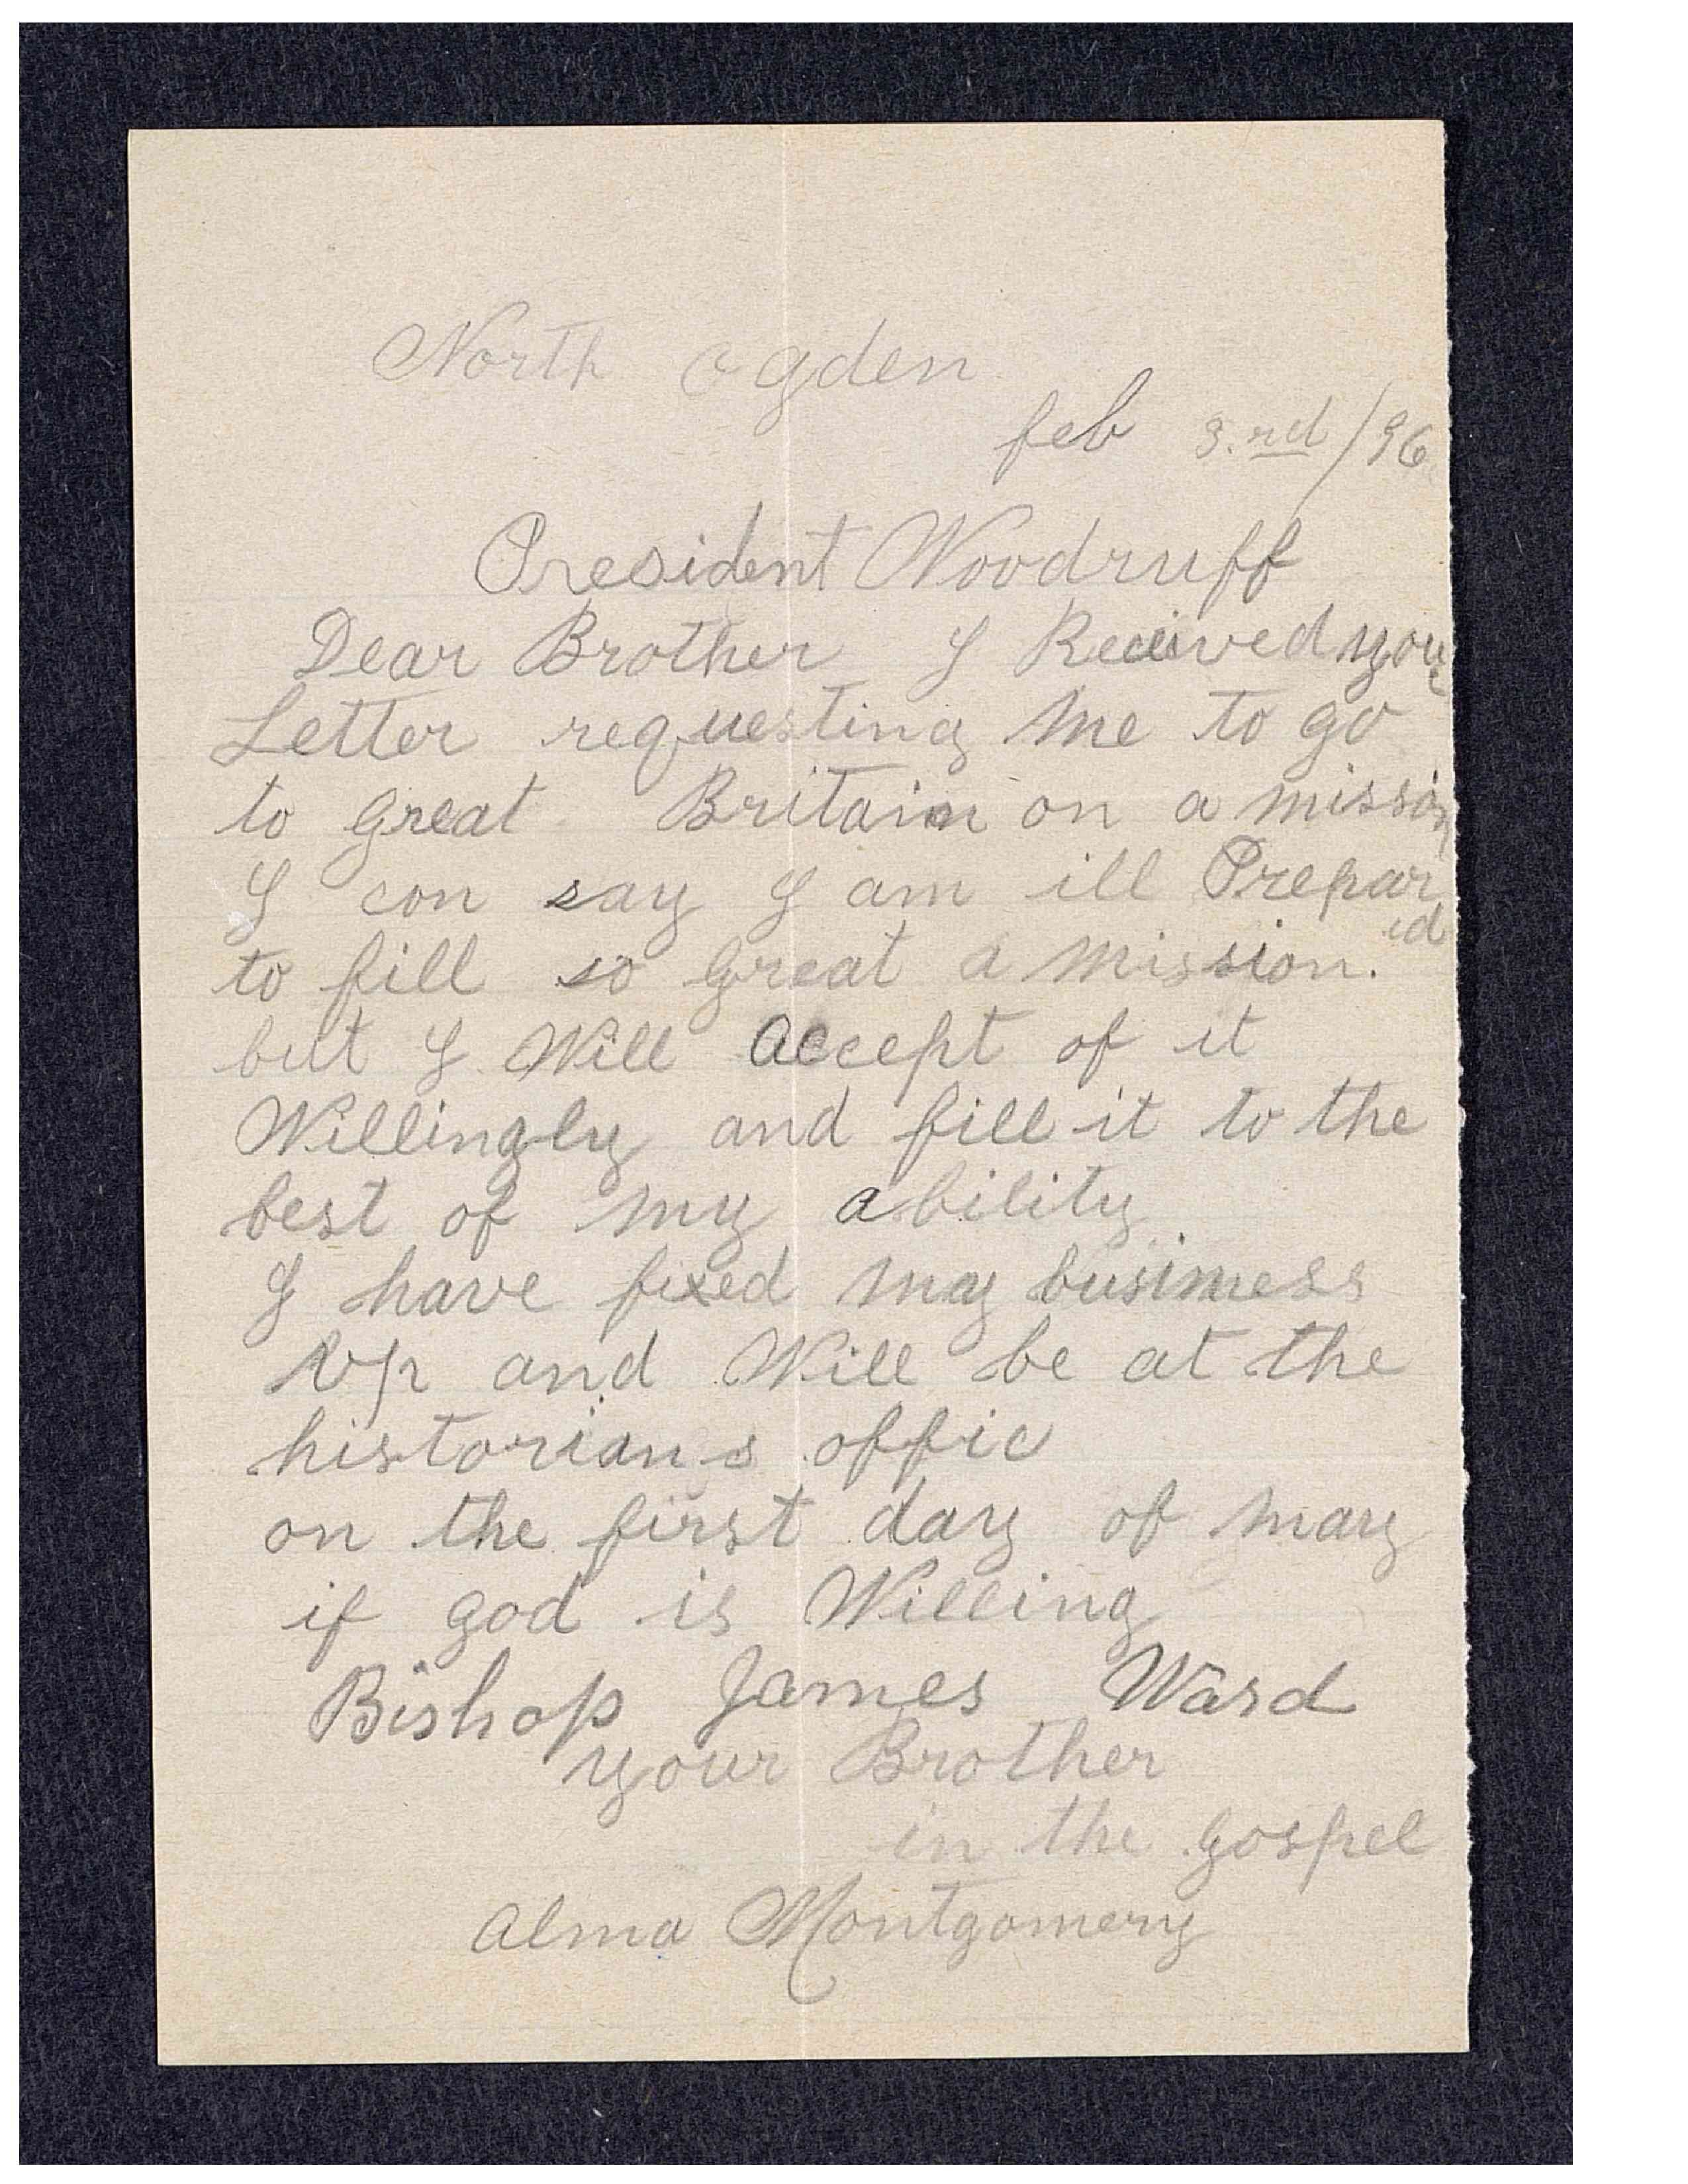 North Ogden
feb 3.rd/96
President Woodruff
Dear Brother I Received your
Letter requesting me to go
to great Britain on a mission
I con say I am ill Prepar
ed
to fill so great a mission.
but I Will accept of it
Willingly and fill it to the
best of my ability
I have fixed my business
up and Will be at the
historians offic
on the first day of may
if god is Willing
Bishop James Ward
your Brother
in the gospel
Alma Montgomery